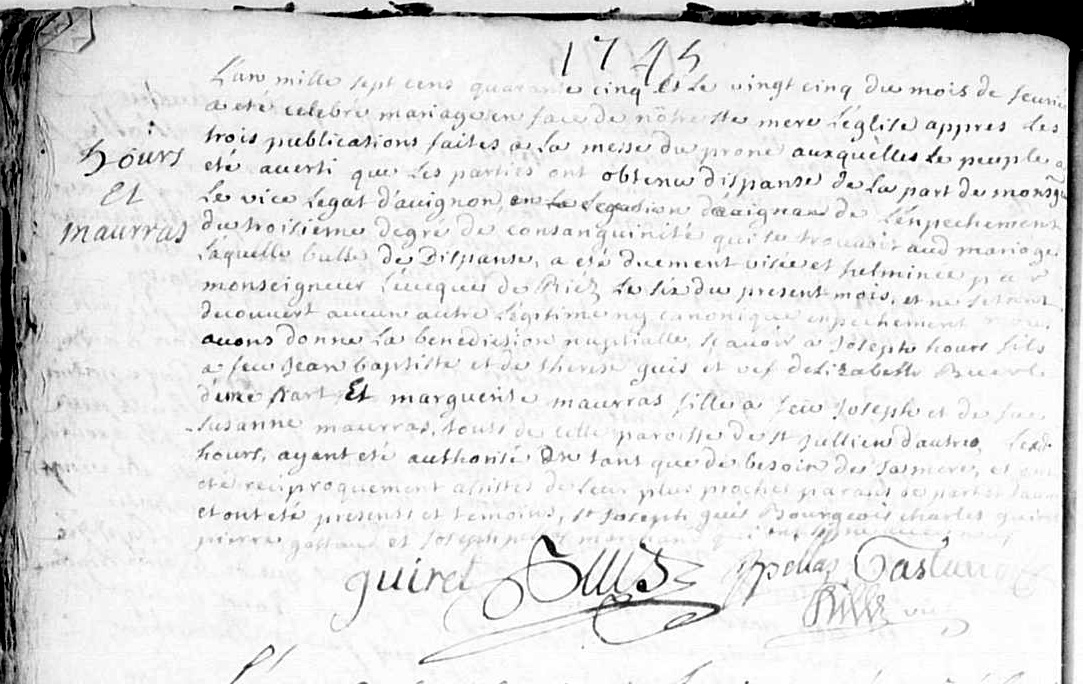 1745
L'an mille sept cens quarante cinq et le vingt cinq du mois de feuvrie
a eté celebre mariage en face de nôtre ste mere l'église appres les
trois publications faites a la messe du prone auxquèlles le peuple a
hours
eté averti que les parties ont obtenu dispanse de la part de monsgr
Et
le vice legat d'avignon, en la legation d'avignon de l'enpechement
maurras
du troisieme degre de consanguinité qui se trouvoit aud mariage
laquelle bulle de Dispanse, a eté duement visée et fulminée par
monseigneur l'éveque de Riéz le six du present mois, et ne setant
decouvert aucun autre légitime ny canonique enpechement nous
avons donne la benediction nuptialle, scavoir a Joseph hours fils
a feu Jean baptiste et de therese guis et vef d'elizabeth
d'une part, Et marguerite maurras fille a feu Joseph et de feue
susanne maurras, touts de cette paroisse de st jullien d'autre, ledt
hours, ayant eté authorisé en tant que de besoin de sa mere, et ont
eté reciproquement assistes de leur plus proches parants de part et d'autre
et ont eté presents et temoins, sr Joseph guis Bourgeois charles guirel
pierre gastaud et Joseph marchand qui ont signé avec nous
guirel Guis